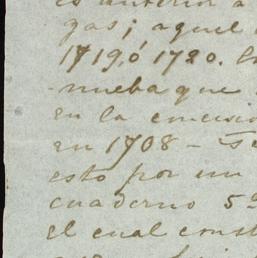 es anterior a
gas; aquel
1719, ó 1720.
nueba que
en la
en 1708 –
esto por un
cuaderno 5º
el cual const